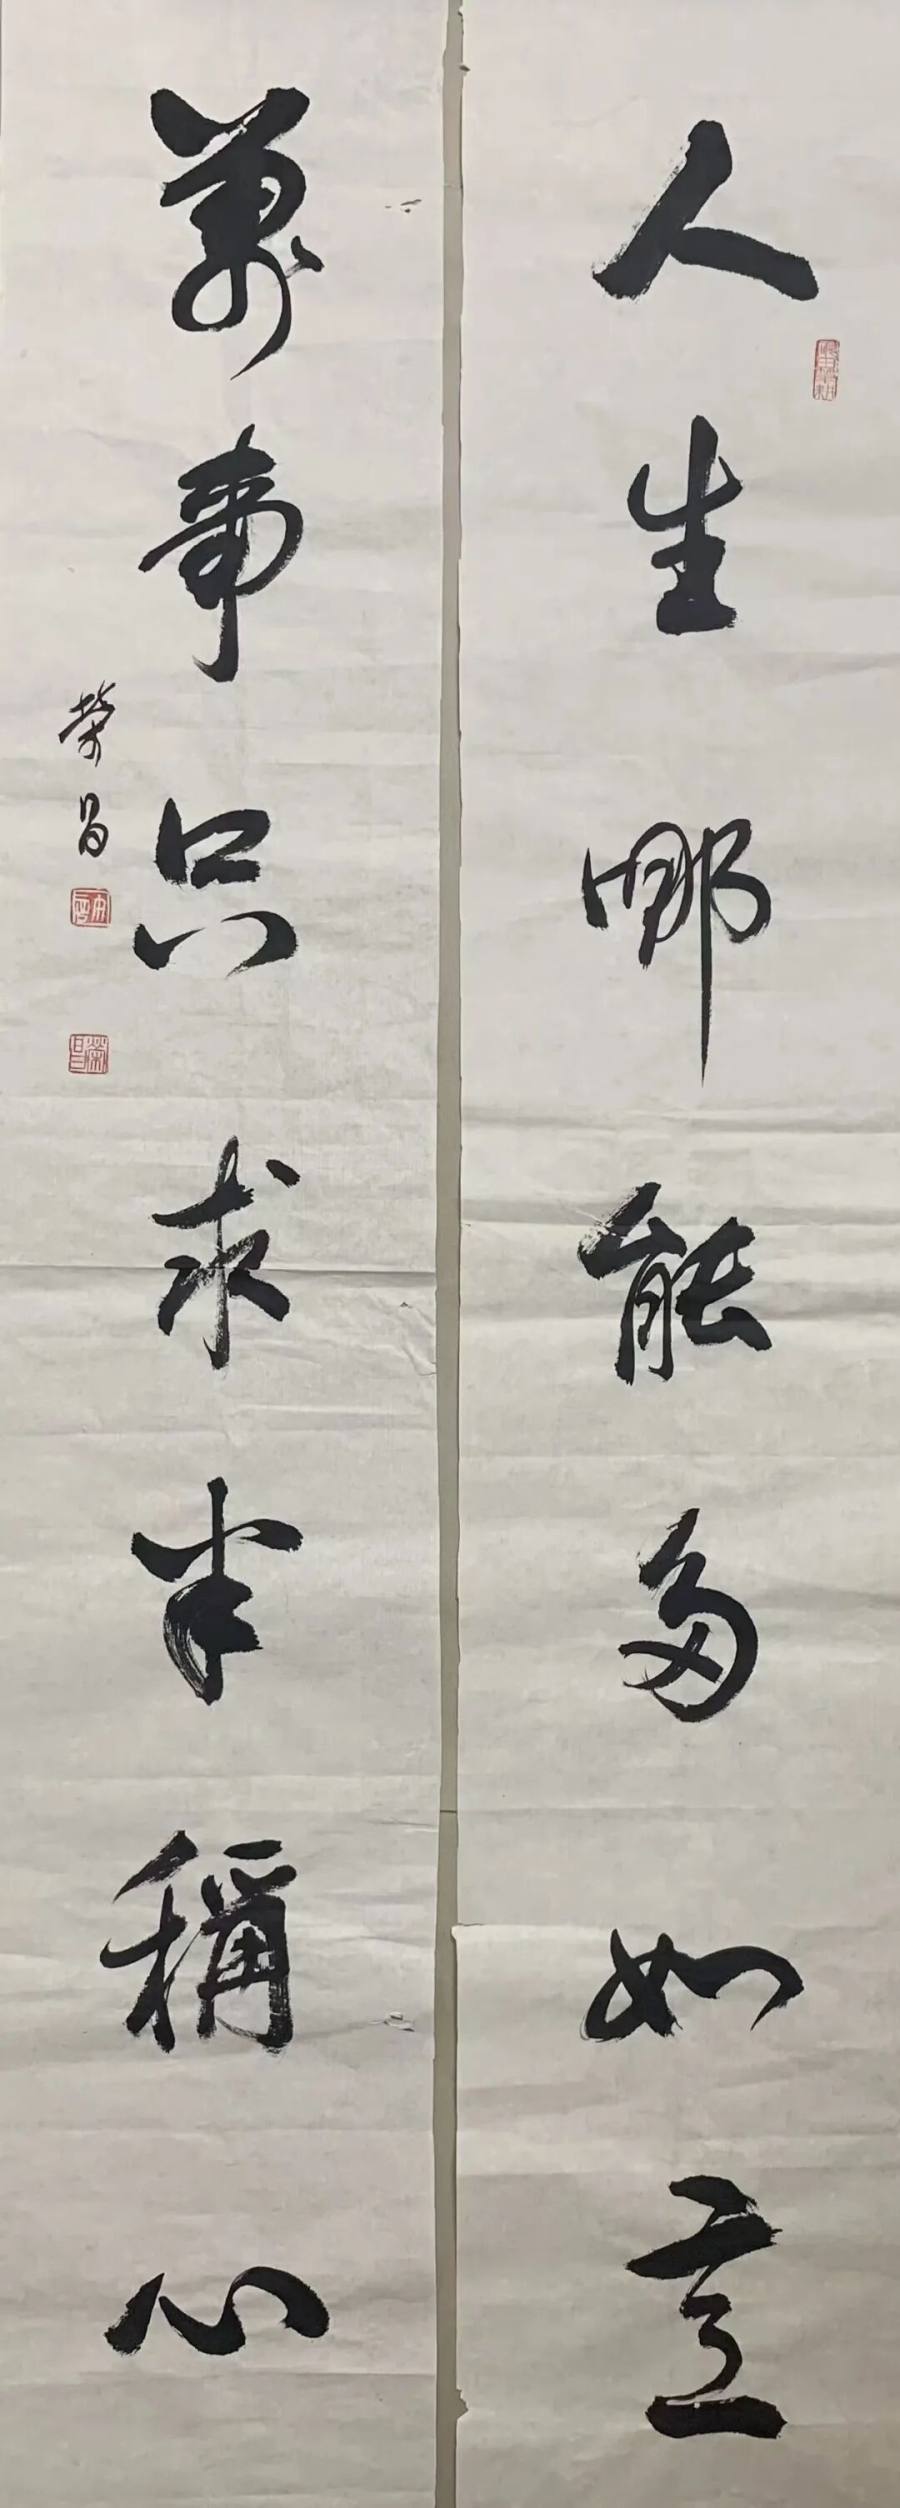 人生哪能多如意
萬事只求半稱心
榮昌